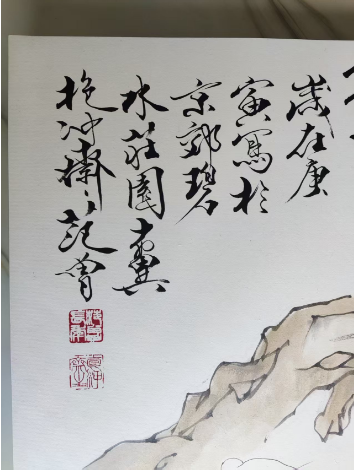 歲在庚
寅寫於
京郊碧
水莊園十翼
抱沖齋范曾